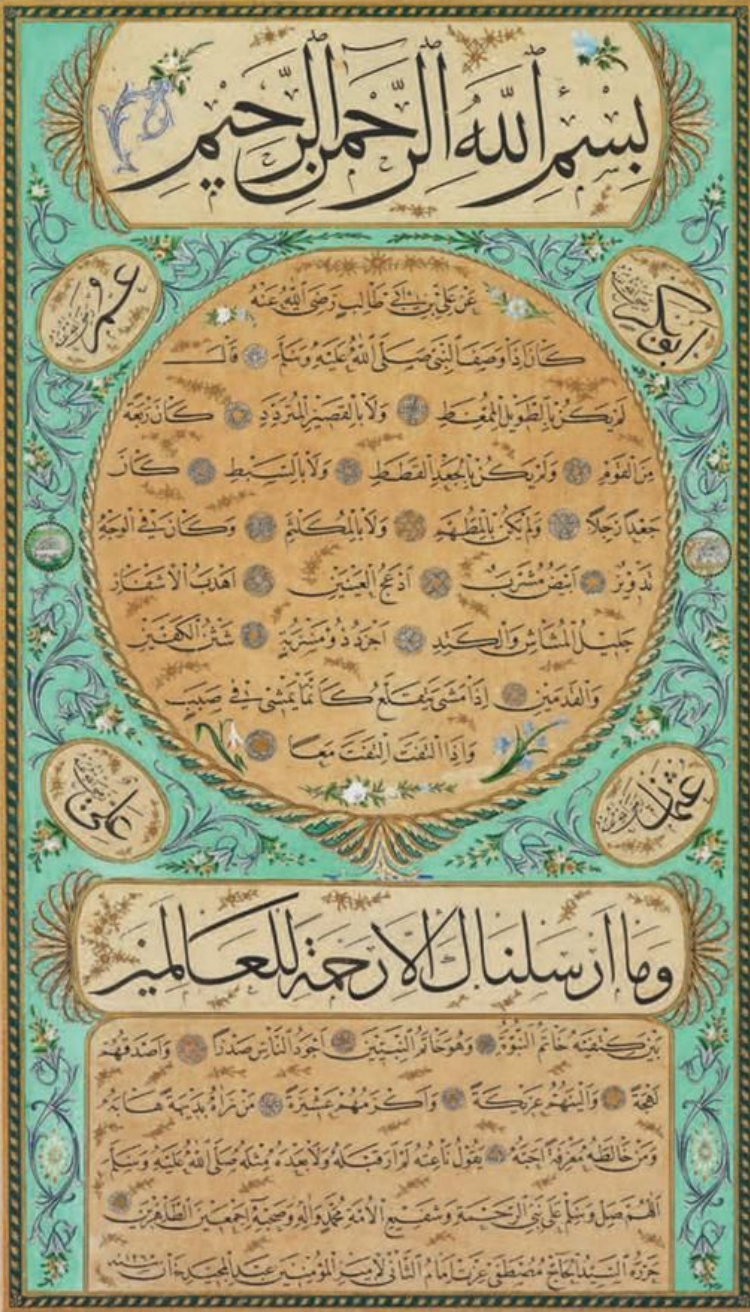 بسم الله الرحمن الرحيم
ابو بكر رضي الله عنه
عمر رضي الله عنه
عن علي بن ابي طالب رضي الله عنه
كان اذا وصف النبي صلى الله عليه وسلم قال
لم يكن بالطويل الممغط ولا بالقصير المتردد كان ربعة
من القوم ولم يكن بالجعد القطط ولا بالسبط كان
جعدا رجلا ولم يكن بالمطهم ولا بالمكلثم وكان في الوجه
تدوير ابيض مشرب ادعج العينين اهدب الاشفار
جليل المشاش والكتد اجرد ذو مسربة شثن الكفين
والقدمين اذا مشى يتقلع كانما يمشي في صبب
واذا التفت التفت معا
عثمان رضي الله عنه
علي رضي الله عنه
وما ارسلناك الا رحمة للعالمين
بين كتفيه خاتم النبوة وهو خاتم النبيين اجود الناس صدرا واصدقهم
لهجة والينهم عريكة واكرمهم عشيرة من رآه بديهة هابه
ومن خالطه معرفة احبه يقول ناعته لم ار قبله ولا بعده مثله صلى الله عليه وسلم
اللهم صل وسلم على نبي الرحمة وشفيع الامة محمد وآله وصحبه اجمعين الطاهرين
حرره السيد الحاج مصطفى عزت امام الثاني لامير المؤمنين عبد المجيد خان